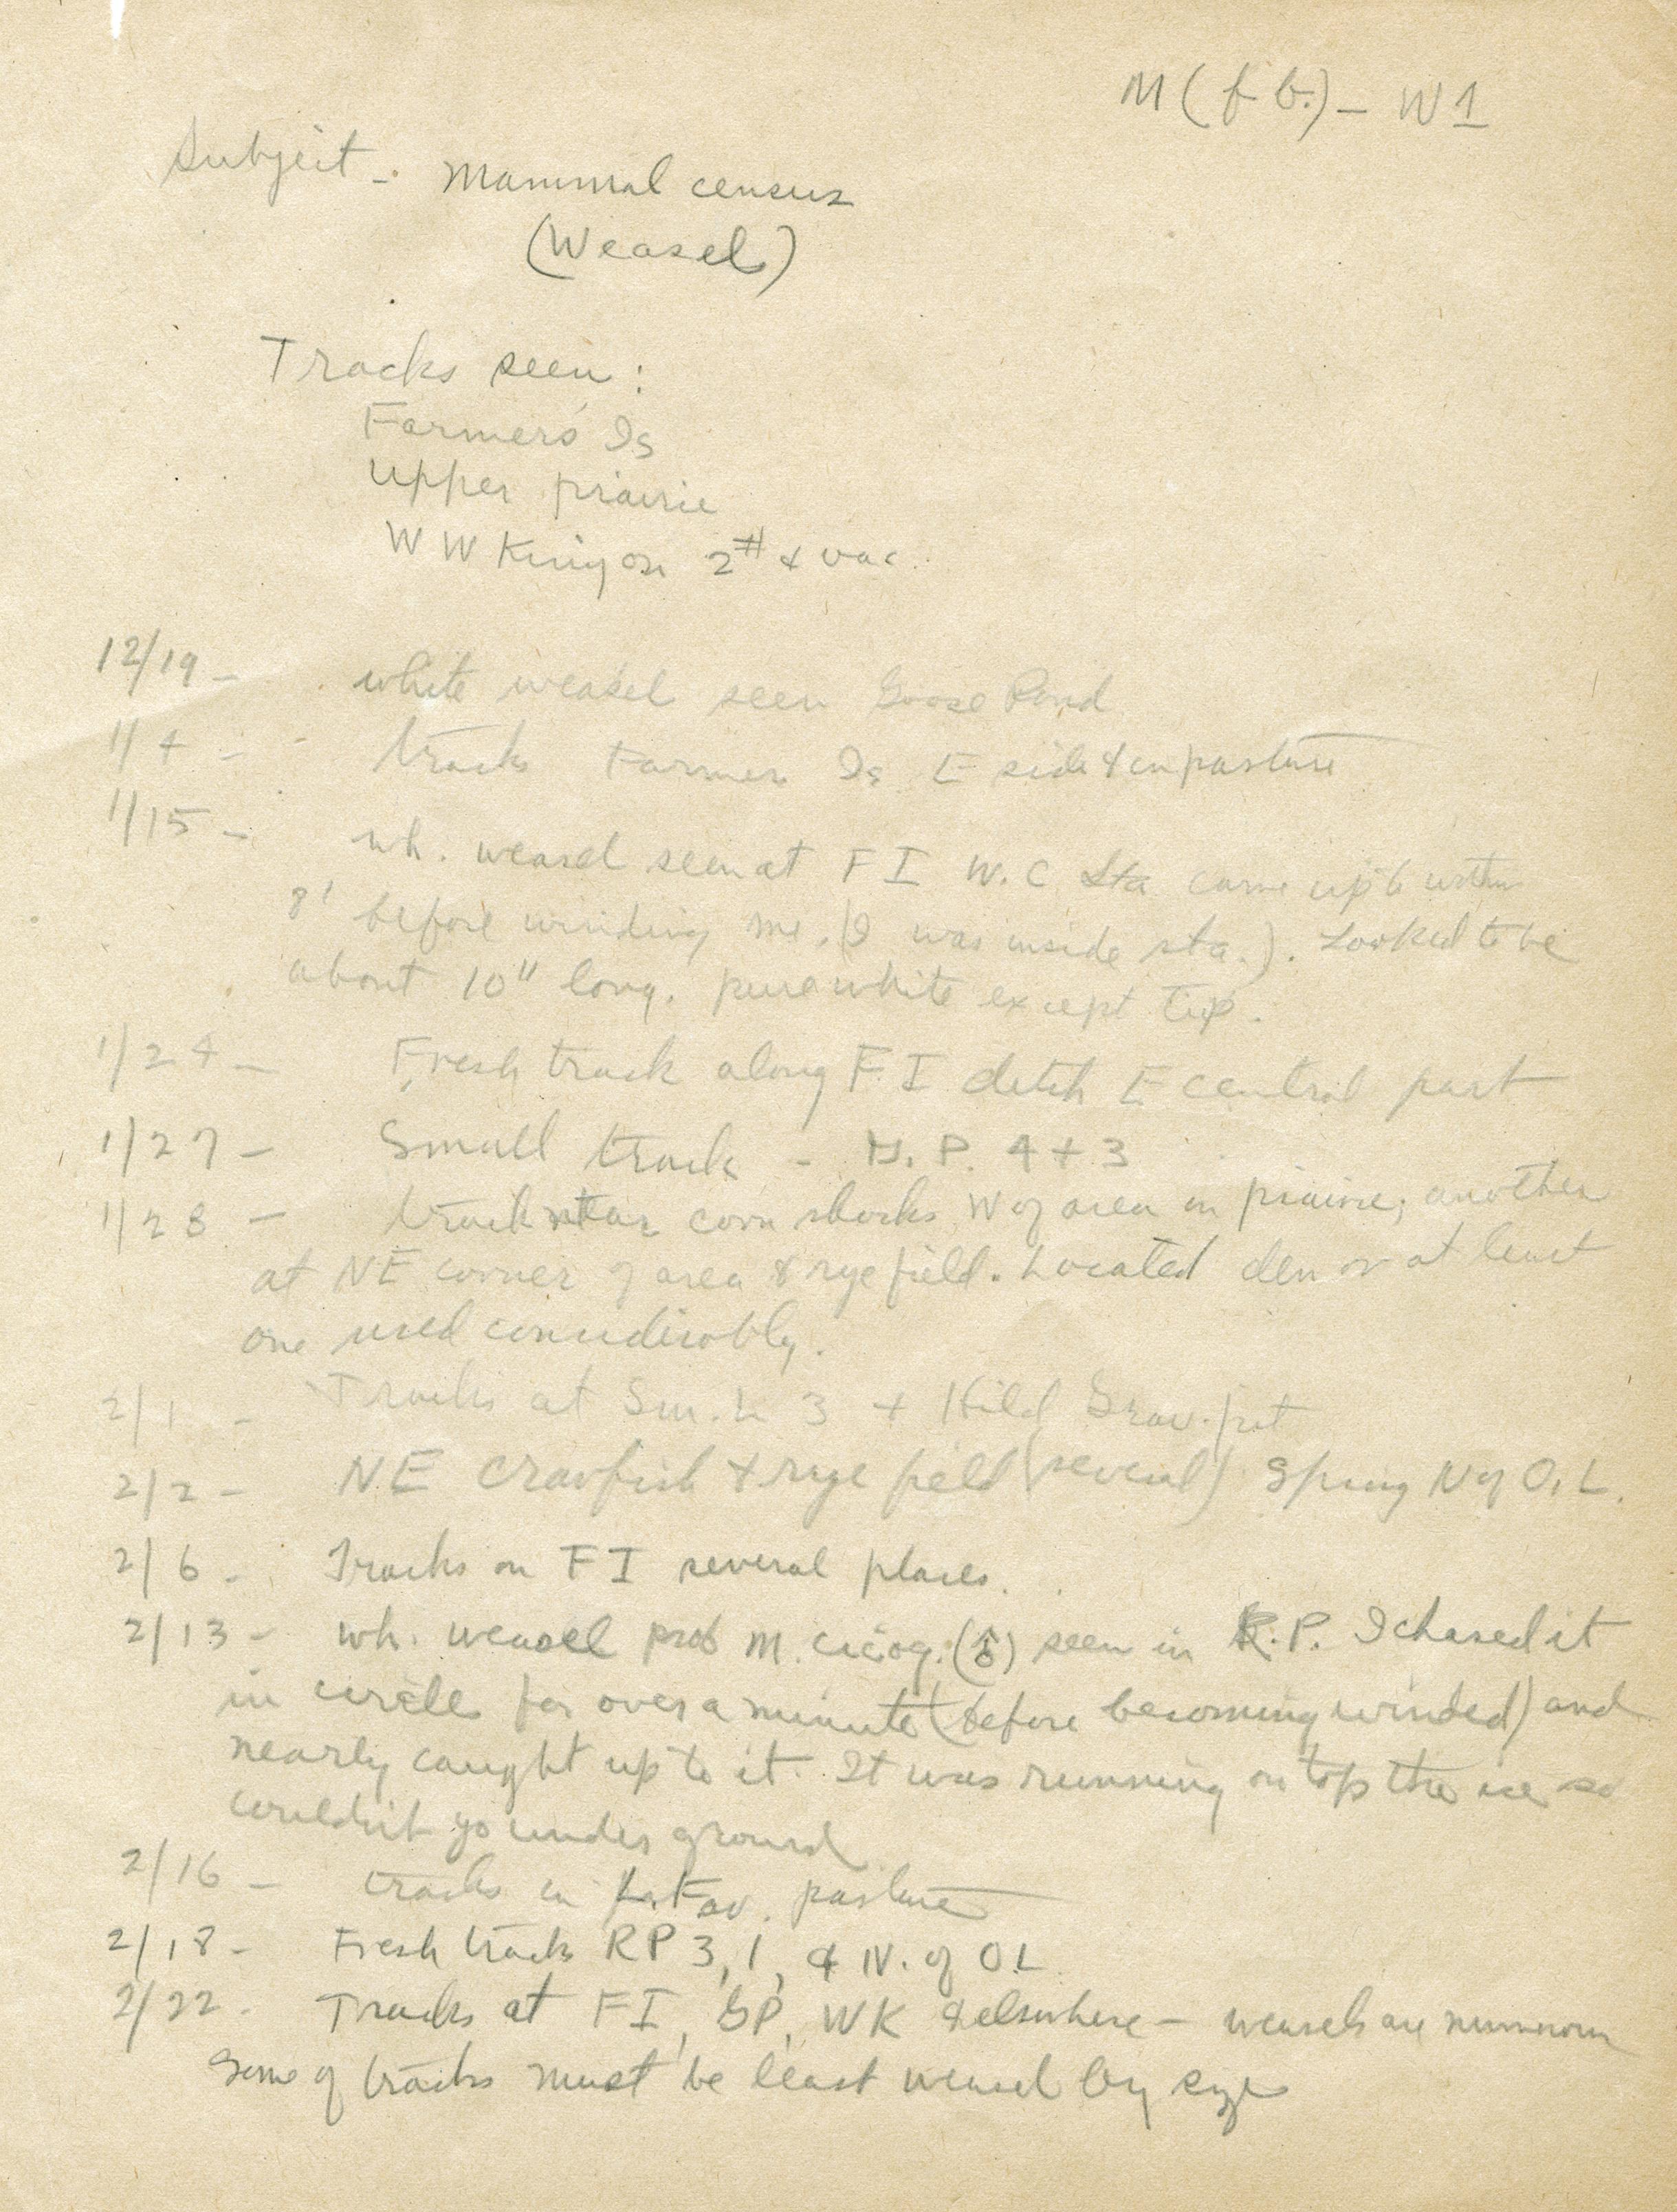 M (f b.) - W 1
Subject -. Mammal census
(Weasel)
Tracks seen:
Farmers Is
Upper prairie
W W Kingon 2# & vac.
12/19 - white weasel seen Goose Pond
1/4 - tracks Farmers Is E side & in pasture
1/15 - wh. weasel seen at F I W. C Sta came up to within
8' before winding me. (I was inside sta.). Looked to be
about 10" long. pure white except tip.
1/24 - Fresh track along F. I ditch E central part
1/27 - Small track - P. 4 + 3
1/28 - track near corn shocks W of area in prairie; another
at NE corner of area & rye field. Located den or at least
one used considerably.
2/1 - Tracks at Sm. L 3 + Hild Grav. pit
2/2 - NE Crayfish + rye field (several) Spring N of O. L.
2/6 - Tracks on F I several places.
2/13 - wh. weasel prob M. cicog. (♂) seen in R. P. I chased it
in circle for over a minute (before becoming winded) and
nearly caught up to it. It was running on top the ice so
couldn't go under ground
2/16 - tracks in pasture
2/18 - Fresh tracks R P 3, 1, & N. of O. L.
2/22 - Tracks at F I, G P, W K & elsewhere - weasels are numerous
Some of tracks must be least weasel by size